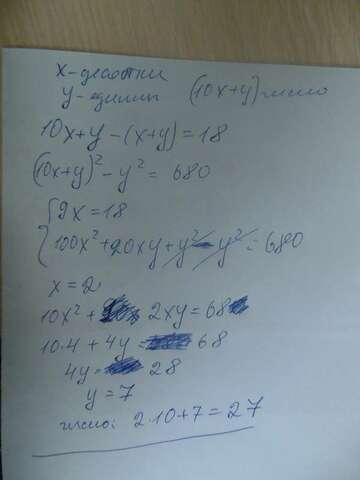 x-десятки
y-единицы (10x+y) число
10x+y-(x+y)=18
(10x+y)²-y²= 680
{9x=18
{100x²+20xy+y²-y²=680
x=2
10x²+ 2xy=68
10·4+4y= 68
4y= 28
y=7
число: 2·10+7=27